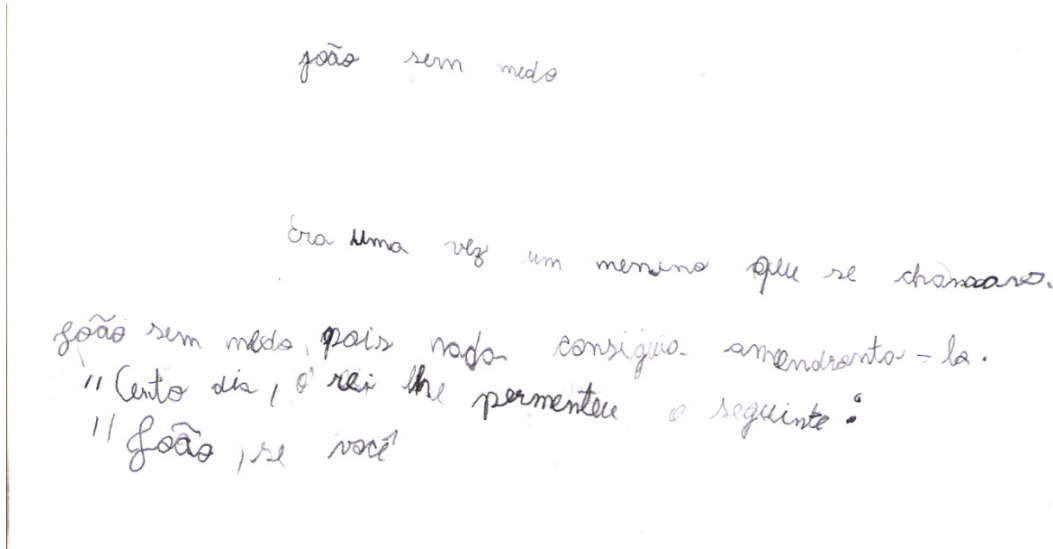 joão sem medo
Era uma vez um menino que se chamava.
João sem medo, pois nada consiguia amendranta-lo.
"Certo dia, o rei lhe permenteu o seguinte:
"João, se você